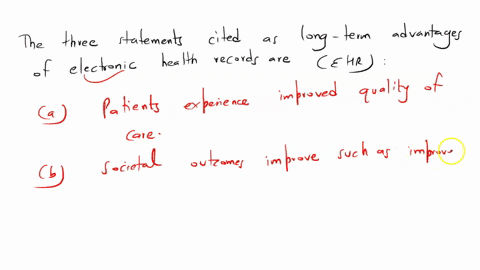 The three statements cited as long-term advantages
of electronic health records are (EHR) :
(a) Patients experience improved quality of
care.
(b) Societal outcomes improve such as improve